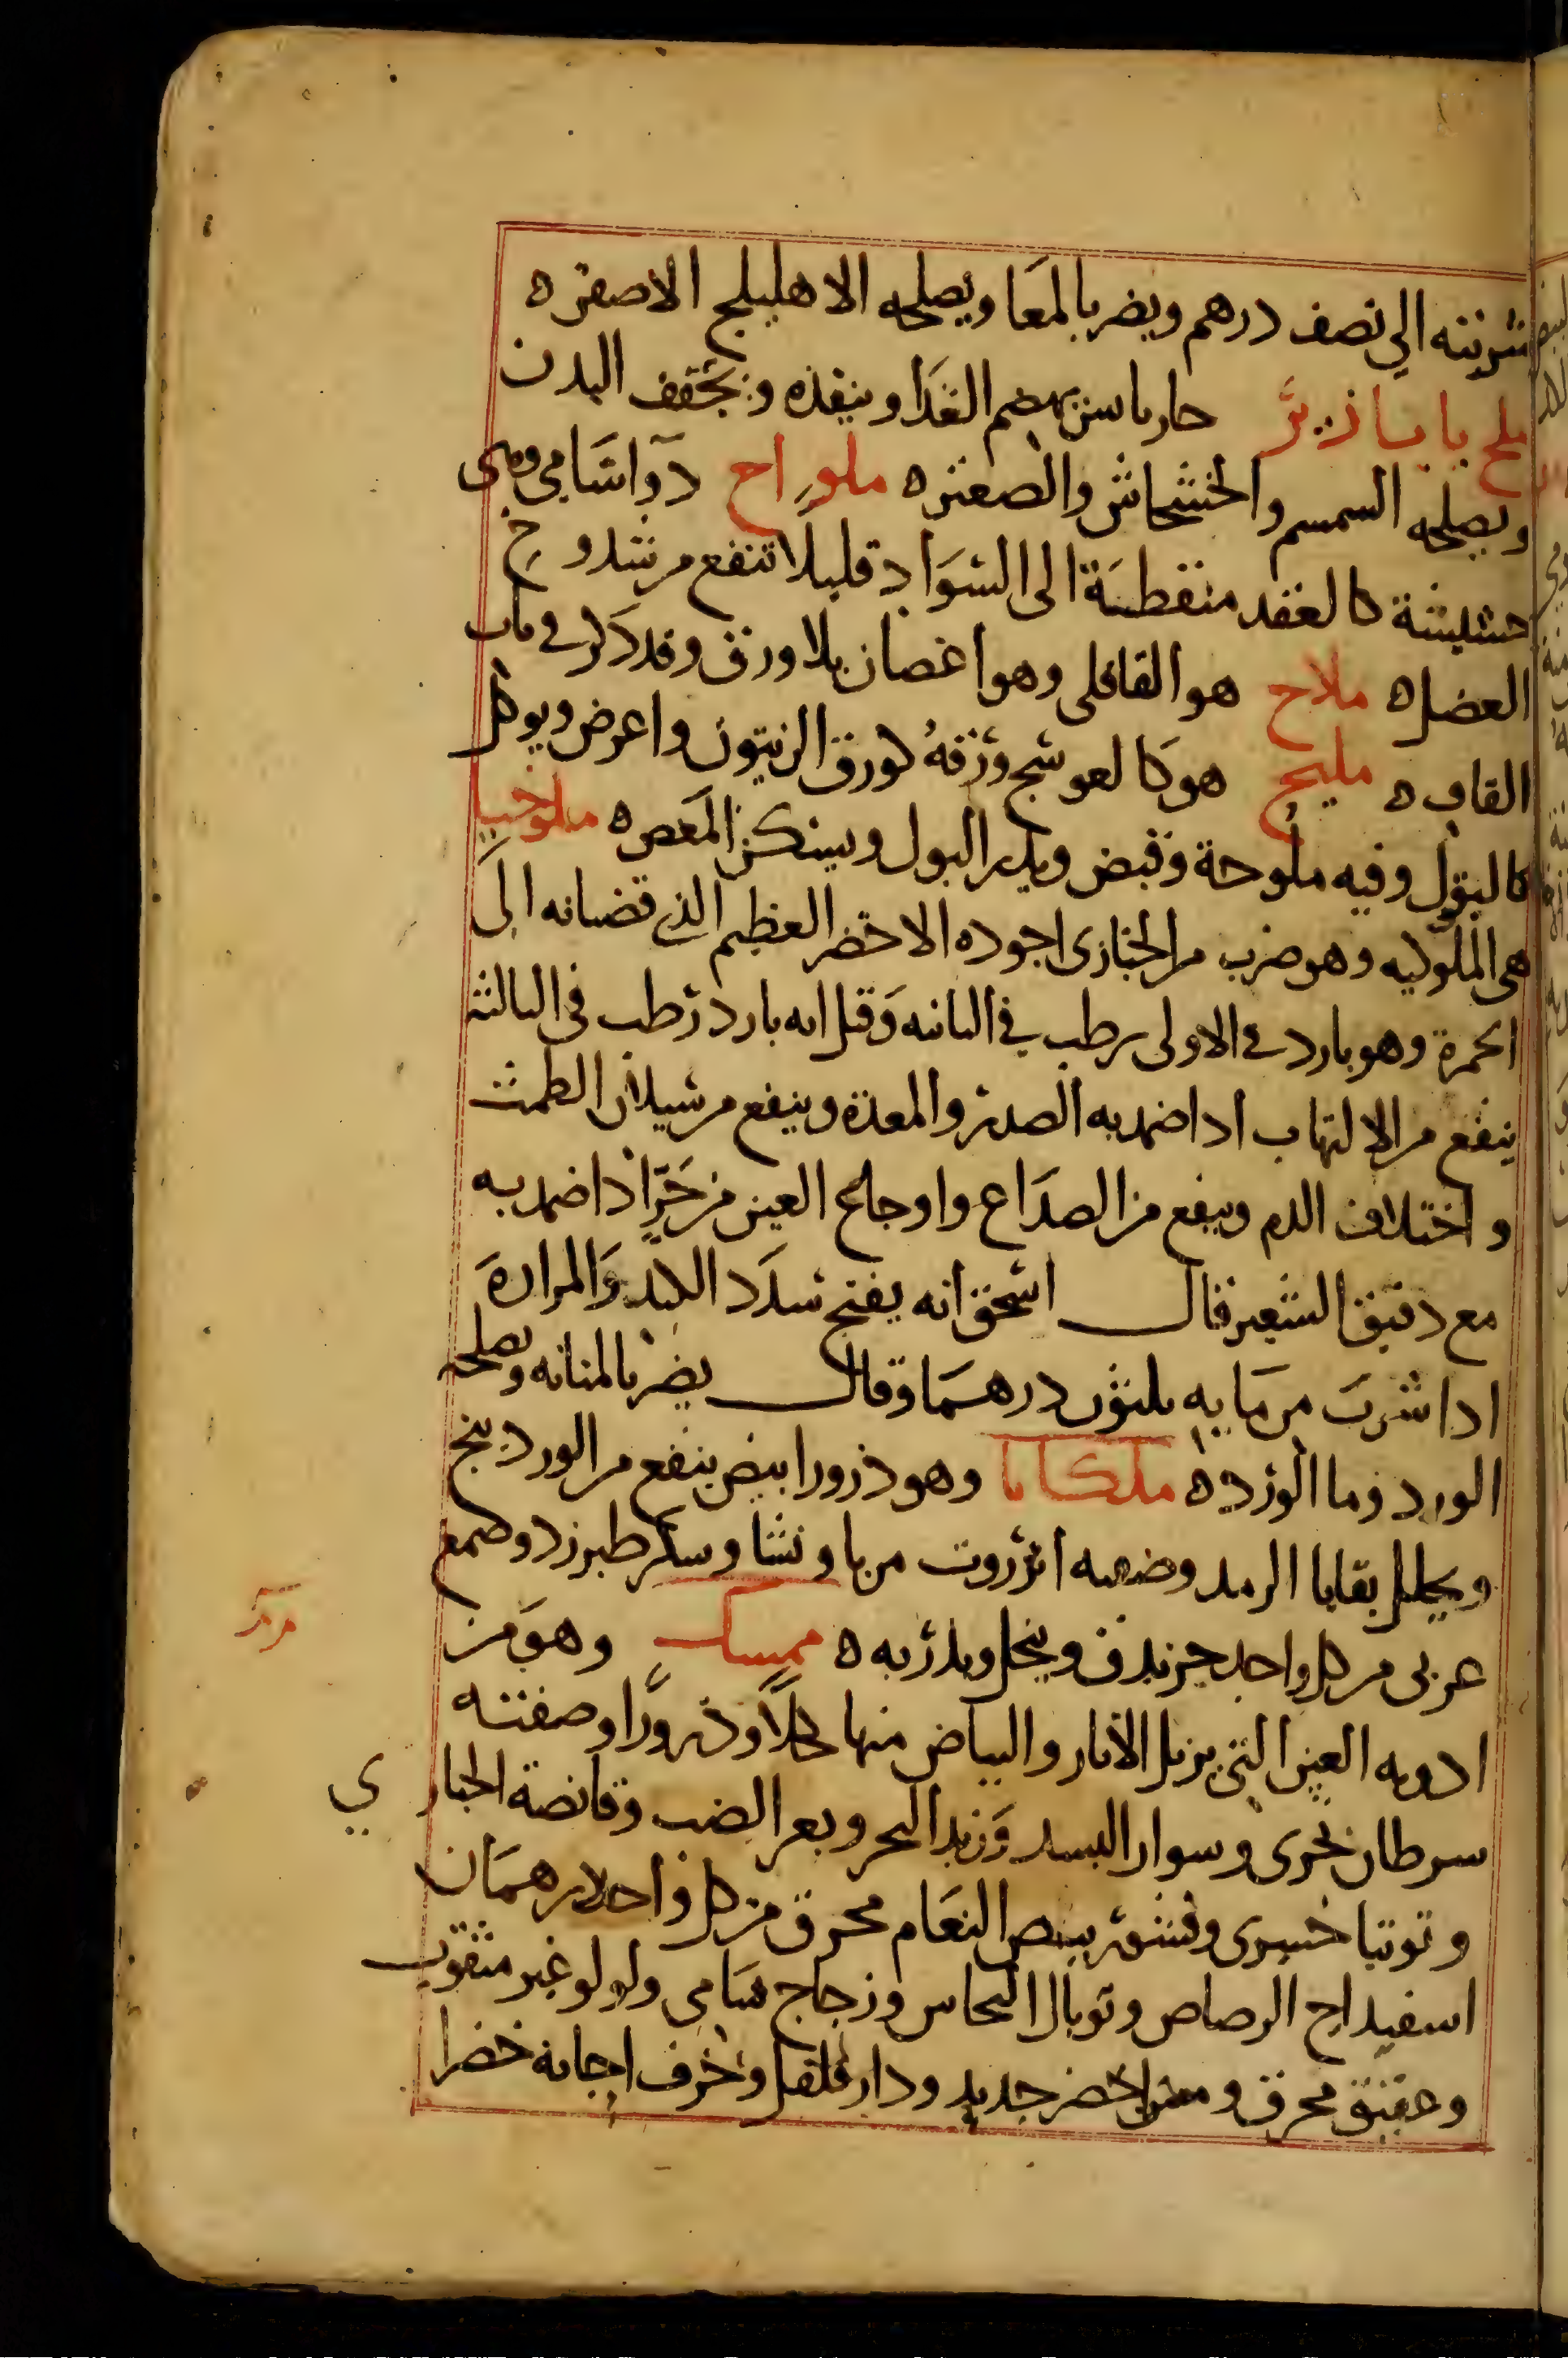 شربته الى نصف درهم ويضر بالمعا ويصلحه الاهليلج الاصفر ه
ملح حار يابس يهضم الغذا وينفذه ويجفف البدن
ويصلحه السمسم والخشخاش والصعتر ه ملوراح دوا شامي وهى
حشيشة كالعقد منقطة الى السواد قليلا تنفع من شدوخ
العضل ه ملاح هو القاقلى وهو اغصان بلا ورق وقد ذكر في باب
القاف ه مليح هو كالعوسج ورقه كورق الزيتون واعرض ويوكل
كالبقول وفيه ملوحة وقبض ويدر البول ويسكن المغص ه ملوخيا
هى الملوكيه وهو ضرب من الخبازى اجوده الاخضر العظيم الذي قضبانه الى
الحمرة وهو بارد في الاولى رطب في الثانيه وقيل انه بارد رطب فى الثالثة
ينفع من الالتهاب اذا ضمد به الصدر والمعدة وينفع من سيلان الطمث
واختلاف الدم وينفع من الصداع واوجاع العين من حر اذا ضمد به
مع دقيق الشعير قال اسحق انه يفتح سدد الكبد والمرارة
اذا شرب من مايه ثلثون درهما وقال يضر بالمثانه ويصلحه
الورد وما الورد ه ملكايا وهو ذرور ابيض ينفع من الوردينج
ويحلل بقايا الرمد وصنعته انزروت مربا ونشا وسكر طبرزد وصمغ
عربى من كل واحد جزيدق وينخل ويذر به ه ممسك وهو من
ادويه العين التى يزيل الاثار والبياض منها كحلا وذرورا وصفته
سرطان بحرى وسوار السند وزبد البحر وبعر الضب وقانصة الحبارى
وتوتيا خسرى وقشر بيض النعام محرق من كل واحد درهمان
اسفيداج الرصاص وتوبال النحاس وزجاج شامى ولولو غير مثقوب
وعقيق محرق ومسن اخضر جديد ودار فلفل وخزف اجانة خضرا